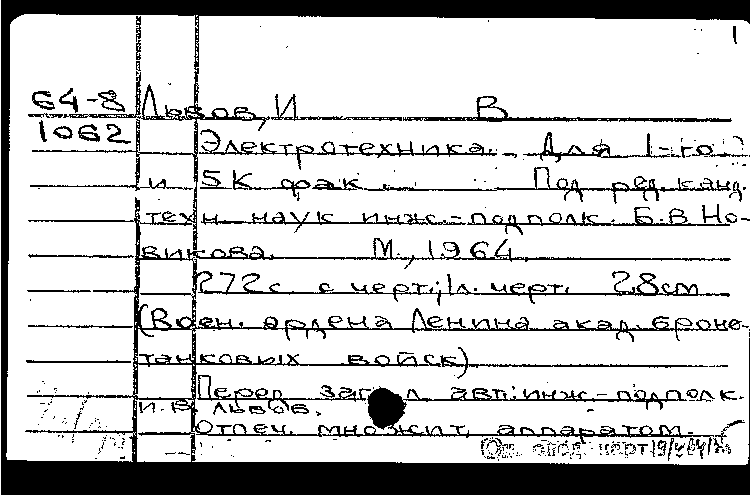 1
64-8 Львов, И В
1062 Электротехника. Для 1-го
и 5К фак. Под ред. канд.
техн. наук инж.-подполк. Б.В. Но-
викова. М., 1964.
272 с. с черт.; 1 л. черт. 28 см
(Воен. ордена Ленина акад. броне-
танковых войск).
Перед загл. авт.: инж.-подполк.
И.В. Львов.
Отпеч. множит. аппаратом.